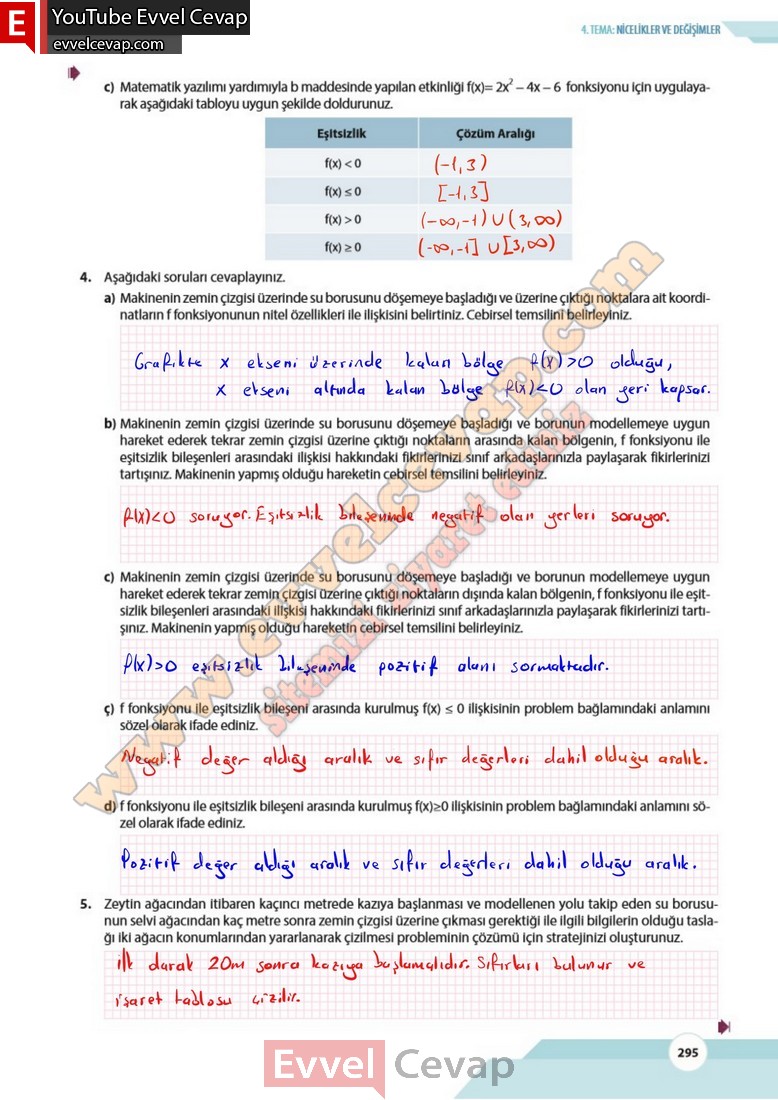 E
YouTube Evvel Cevap
evvelcevap.com
4. TEMA: NİCELİKLER VE DEĞİŞİMLER
c) Matematik yazılımı yardımıyla b maddesinde yapılan etkinliği f(x)= 2x² – 4x – 6 fonksiyonu için uygulaya-
rak aşağıdaki tabloyu uygun şekilde doldurunuz.
Eşitsizlik Çözüm Aralığı
f(x) < 0 (-1,3)
f(x) ≤ 0 [-1,3]
f(x) > 0 (-∞,-1) U (3,∞)
f(x) ≥ 0 (-∞,-1] U [3,∞)
4. Aşağıdaki soruları cevaplayınız.
a) Makinenin zemin çizgisi üzerinde su borusunu döşemeye başladığı ve üzerine çıktığı noktalara ait koordi-
natların f fonksiyonunun nitel özellikleri ile ilişkisini belirtiniz. Cebirsel temsilini belirleyiniz.
Grafikte x ekseni üzerinde kalan bölge f(x)>0 olduğu,
x ekseni altında kalan bölge f(x)<0 olan yeri kapsar.
b) Makinenin zemin çizgisi üzerinde su borusunu döşemeye başladığı ve borunun modellemeye uygun
hareket ederek tekrar zemin çizgisi üzerine çıktığı noktaların arasında kalan bölgenin, f fonksiyonu ile
eşitsizlik bileşenleri arasındaki ilişkisi hakkındaki fikirlerinizi sınıf arkadaşlarınızla paylaşarak fikirlerinizi
tartışınız. Makinenin yapmış olduğu hareketin cebirsel temsilini belirleyiniz.
f(x)<0 soruyor. Eşitsizlik bileşeninde negatif olan yerleri soruyor.
c) Makinenin zemin çizgisi üzerinde su borusunu döşemeye başladığı ve borunun modellemeye uygun
hareket ederek tekrar zemin çizgisi üzerine çıktığı noktaların dışında kalan bölgenin, f fonksiyonu ile eşit-
sizlik bileşenleri arasındaki ilişkisi hakkındaki fikirlerinizi sınıf arkadaşlarınızla paylaşarak fikirlerinizi tartı-
şınız. Makinenin yapmış olduğu hareketin cebirsel temsilini belirleyiniz.
f(x)>0 eşitsizlik bileşeninde pozitif olanı sormaktadır.
ç) f fonksiyonu ile eşitsizlik bileşeni arasında kurulmuş f(x) ≤ 0 ilişkisinin problem bağlamındaki anlamını
sözel olarak ifade ediniz.
Negatif değer aldığı aralık ve sıfır değerleri dahil olduğu aralık.
d) f fonksiyonu ile eşitsizlik bileşeni arasında kurulmuş f(x)≥0 ilişkisinin problem bağlamındaki anlamını sö-
zel olarak ifade ediniz.
Pozitif değer aldığı aralık ve sıfır değerleri dahil olduğu aralık.
5. Zeytin ağacından itibaren kaçıncı metrede kazıya başlanması ve modellenen yolu takip eden su borusu-
nun selvi ağacından kaç metre sonra zemin çizgisi üzerine çıkması gerektiği ile ilgili bilgilerin olduğu tasla-
ğı iki ağacın konumlarından yararlanarak çizilmesi probleminin çözümü için stratejinizi oluşturunuz.
ilk darak 20m sonra kazıya başlamalıdır. Sıfırları bulunur ve
işaret tablosu çizilir.
www.evvelcevap.com
sitemizi ziyaret ediniz
295
Evvel Cevap